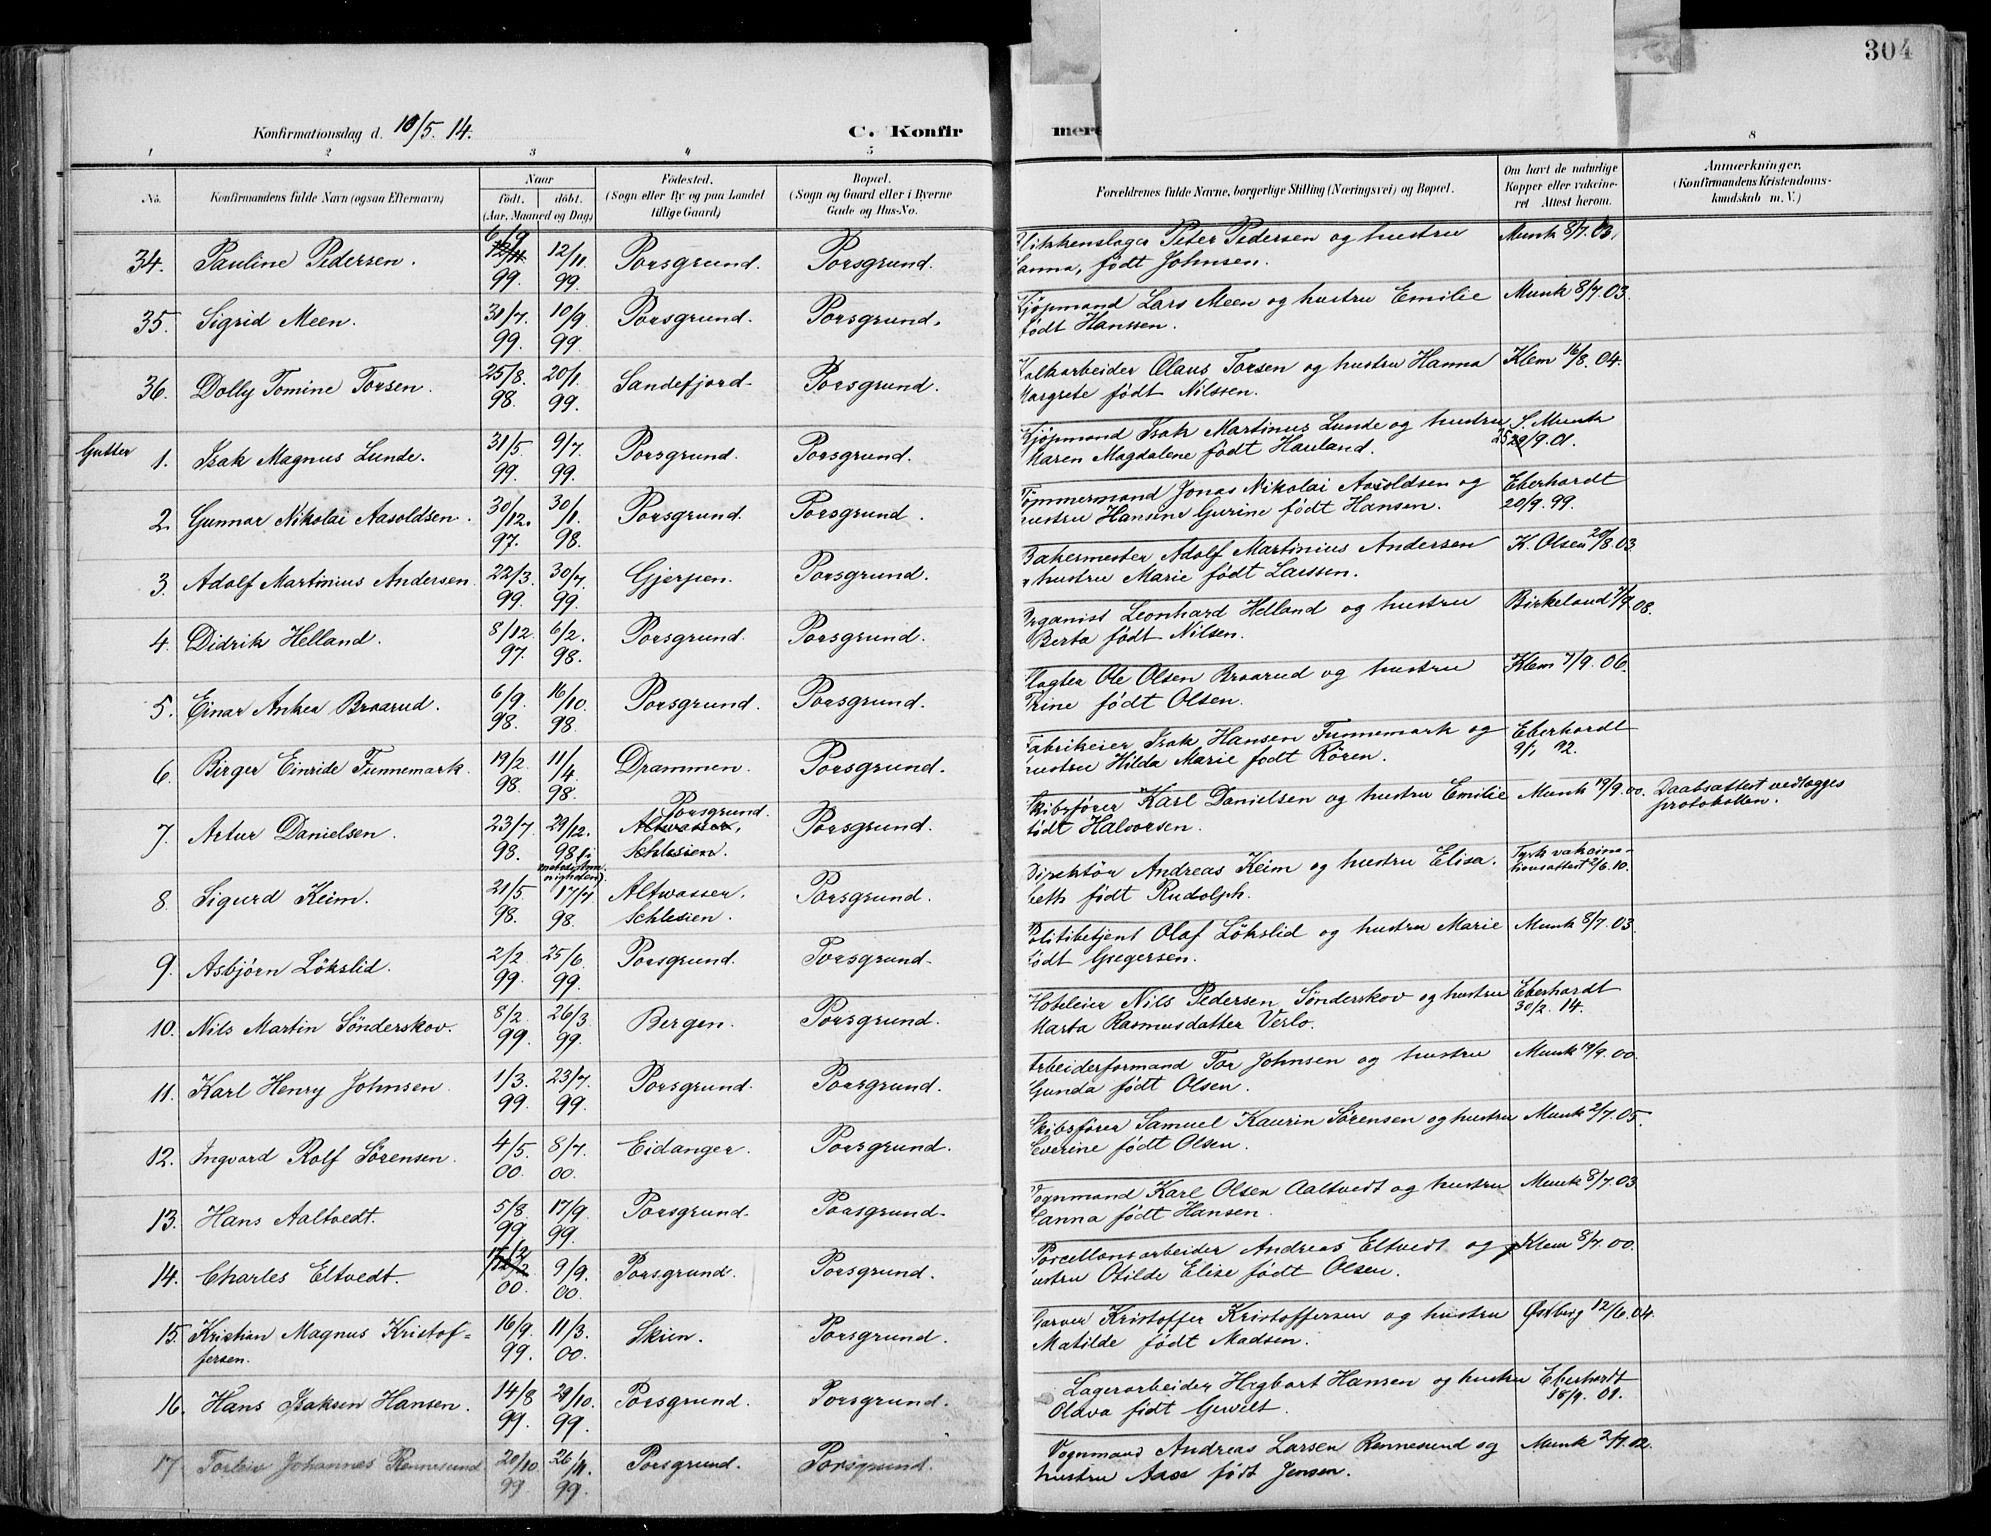 304
Konfirmationsdag d. 10/5. 14.
C. Konfir
mere
1 2 3 4 5 8
No.
Konfirmandens fulde Navn (ogsaa Efternavn)
Naar
født. døbt.
(Aar, Maaned og Dag)
Fødested.
(Sogn eller By og paa Landet
tillige Gaard)
Bopæl.
(Sogn og Gaard eller i Byerne
Gade og Hus-No.
Forældrenes fulde Navne, borgerlige Stilling (Næringsvei) og Bopæl.
Om havt de naturlige
Kopper eller vakcine-
ret Attest herom.
Anmærkninger.
(Konfirmandens Kristendoms-
kundskab m. V.)
34. Pauline Pedersen. 6/9 12/11 99. 12/11. 99. Porsgrund. Porsgrund.
likkenslager Peter Pedersen og hustru Munk 8/7. 03.
anna, født Johnsen.
35. Sigrid Meen. 31/7 99. 10/9 99. Porsgrund. Porsgrund.
jøpmand Lars Meen og hustru Emilie Munk 8/7. 03.
født Hanssen.
36. Dolly Tomine Torsen. 25/8. 98. 20/1. 99. Sandefjord. Porsgrund.
alkarbeider Olaus Torsen og hustru Hanna Klem 16/8. 04.
argrete født Nilssen.
Gutter 1. Isak Magnus Lunde. 31/5 99. 9/7 99. Porsgrund. Porsgrund.
jøpmand Isak Martinus Lunde og hustru S. Munk
Maren Magdalene født Hauland. 25/9. 01.
2. Gunnar Nikolai Aasoldsen. 30/12. 97. 30/1. 98. Porsgrund. Porsgrund.
ømmermand Jonas Nikolai Aasoldsen og Eberhardt
ustru Hansine Gurine født Hansen. 20/9. 99.
3. Adolf Martinius Andersen. 22/3. 99. 30/7. 99. Gjerpen. Porsgrund.
Bakermester Adolf Martinius Andersen K. Olsen 20/8. 03
hustru Marie født Larssen.
4. Didrik Helland. 8/12. 97. 6/2. 98. Porsgrund. Porsgrund.
rganist Leonhard Helland og hustru Birkeland 7/9 08.
Berta født Nilsen.
5. Einar Anker Braarud. 6/9 98. 16/10. 98. Porsgrund. Porsgrund.
lagter Ole Olsen Braarud og hustru Klem 7/9. 06.
Trine født Olsen.
6. Birger Einride Funnemark. 19/2. 98. 11/4 98. Drammen. Porsgrund.
abrikeier Isak Hansen Funnemark og Eberhardt
ustru Hilda Marie født Røren. 9/1 92.
7. Artur Danielsen. 23/7 98. 29/12. 98 Porsgrund. Altwasser, Schlesien. Porsgrund.
Skibsfører Karl Danielsen og hustru Emilie Munk 19/9. 00. Daabsattest vedlagges
født Halvorsen. protokollen.
8. Sigurd Keim. 21/5 98. 17/7 98. Altwasser. Schlesien. Porsgrund.
Direktør Andreas Keim og hustru Elisa- Tysk vakcina-
beth født Rudolph. tionsattest 2/6. 10.
9. Asbjørn Løkslid. 2/2 99. 25/6. 99. Porsgrund. Porsgrund.
Politibetjent Olaf Løkslid og hustru Marie Munk 8/7. 03
født Gregersen.
10. Nils Martin Sønderskov. 8/2 99. 26/3 99. Bergen. Porsgrund.
Hoteleier Nils Pedersen Sønderskov og hustru Eberhardt
Marta Rasmusdatter Verlo. 30/2. 14.
11. Karl Henry Johnsen. 1/3. 99. 23/7. 99. Porsgrund. Porsgrund.
Arbeiderformand Tor Johnsen og hustru Munk 19/9. 00.
Gunda født Olsen.
12. Ingvard Rolf Sørensen. 4/5 00. 8/7. 00. Eidanger. Porsgrund.
Skibsfører Samuel Kaurin Sørensen og hustru Munk 2/7. 05.
Severine født Olsen.
13. Hans Aaltvedt. 5/8 99. 17/9. 99. Porsgrund. Porsgrund.
Vognmand Karl Olsen Aaltvedt og hustru Munk 8/7. 03
anna født Hansen.
14. Charles Eltvedt. 00. 9/9. 00. Porsgrund. Porsgrund.
Porcellansarbeider Andreas Eltvedt og Klem 8/7. 00.
ustru Otilde Elise født Olsen.
15. Kristian Magnus Kristof- 16/9. 99. 11/3. 00. Skien. Porsgrund.
fersen.
Garver Kristoffer Kristoffersen og hustru Østberg 12/6. 04.
Matilde født Madsen.
16. Hans Isaksen Hansen. 14/8 99. 29/10. 99. Porsgrund. Porsgrund.
Lagerarbeider Hagbart Hansen og hustru Eberhardt
Olava født Gewelt. 18/9. 01.
17. Torleiv Johannes Rennesund 20/10 99 26/11. 99. Porsgrund. Porsgrund.
Vognmand Andreas Larsen Rennesund og Munk 2/7. 02.
hustru Aase født Jensen.